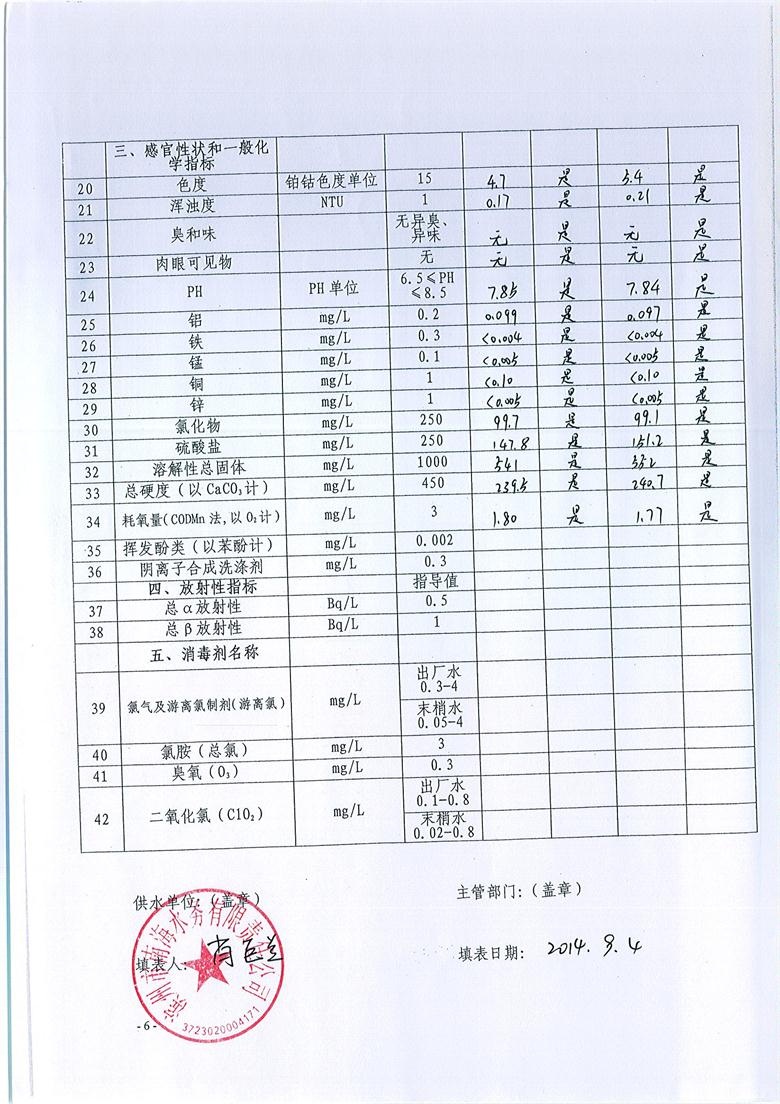 三、感官性状和一般化
学指标
20 色度 铂钴色度单位 15 4.7 是 5.4 是
21 浑浊度 NTU 1 0.17 是 0.21 是
22 臭和味 无异臭、
异味 无 是 无 是
23 肉眼可见物 无 无 是 无 是
24 PH PH单位 6.5≤PH
≤8.5 7.85 是 7.84 是
25 铝 mg/L 0.2 0.099 是 0.097 是
26 铁 mg/L 0.3 <0.004 是 <0.004 是
27 锰 mg/L 0.1 <0.005 是 <0.005 是
28 铜 mg/L 1 <0.10 是 <0.10 是
29 锌 mg/L 1 <0.005 是 <0.005 是
30 氯化物 mg/L 250 99.7 是 99.1 是
31 硫酸盐 mg/L 250 147.8 是 151.2 是
32 溶解性总固体 mg/L 1000 541 是 552 是
33 总硬度(以CaCO₃计) mg/L 450 239.5 是 240.7 是
34 耗氧量(CODMn法,以O₂计) mg/L 3 1.80 是 1.77 是
35 挥发酚类(以苯酚计) mg/L 0.002
36 阴离子合成洗涤剂 mg/L 0.3
四、放射性指标 指导值
37 总α放射性 Bq/L 0.5
38 总β放射性 Bq/L 1
五、消毒剂名称
39 氯气及游离氯制剂(游离氯) mg/L 出厂水
0.3-4
末梢水
0.05-4
40 氯胺(总氯) mg/L 3
41 臭氧(O₃) mg/L 0.3
42 二氧化氯(ClO₂) mg/L 出厂水
0.1-0.8
末梢水
0.02-0.8
供水单位:(盖章) 主管部门:(盖章)
填表人: 填表日期: 2014.9.4
滨州市南海水务有限责任公司
3723020004171
-6-